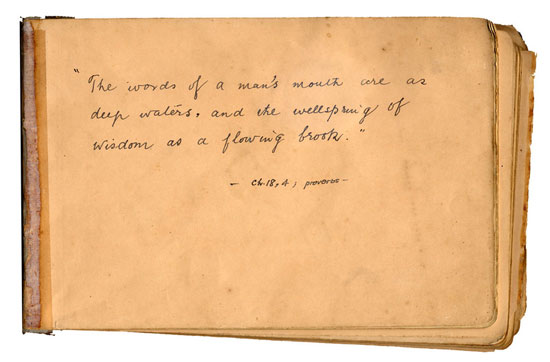 "The words of a man's mouth are as
deep waters, and the wellspring of
wisdom as a flowing brook."
- Ch. 18, 4; proverbs -